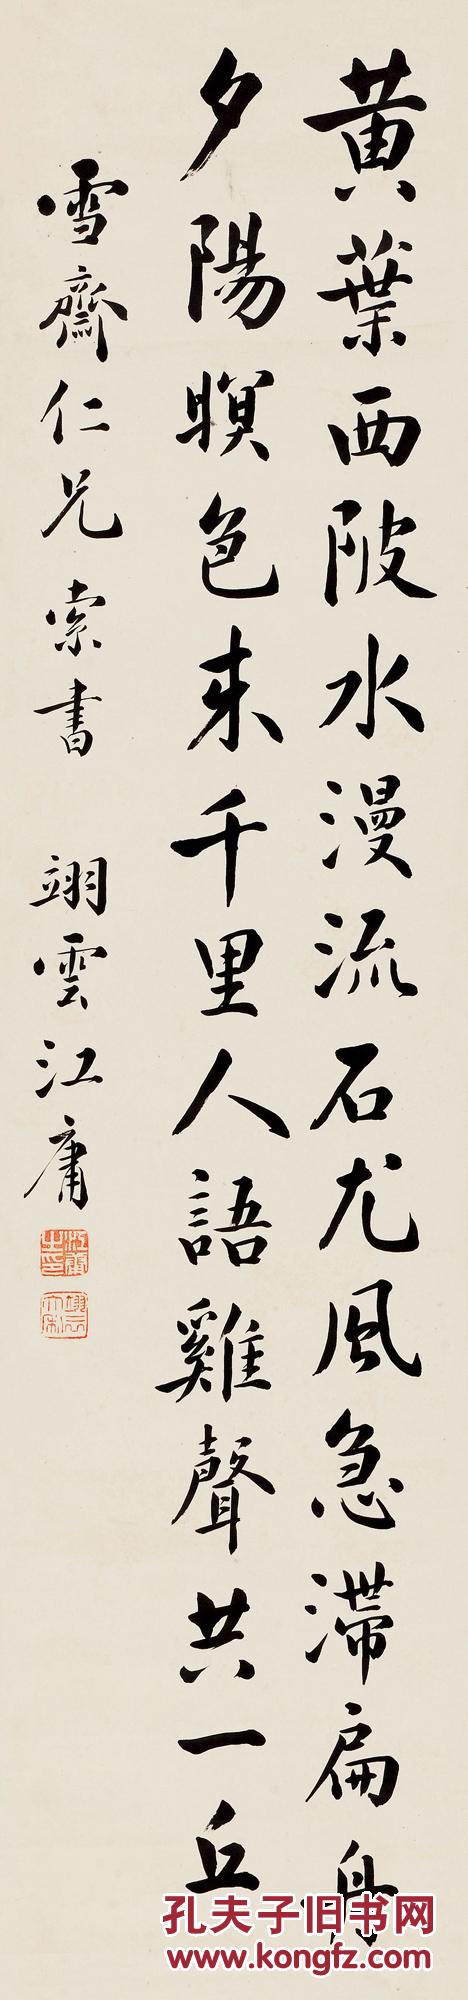 黄葉西陂水漫流石尤風急滯扁舟
夕陽暝色来千里人語雞聲共一丘
雪齋仁兄索書 翊雲江庸
孔夫子旧书网
www.kongfz.com